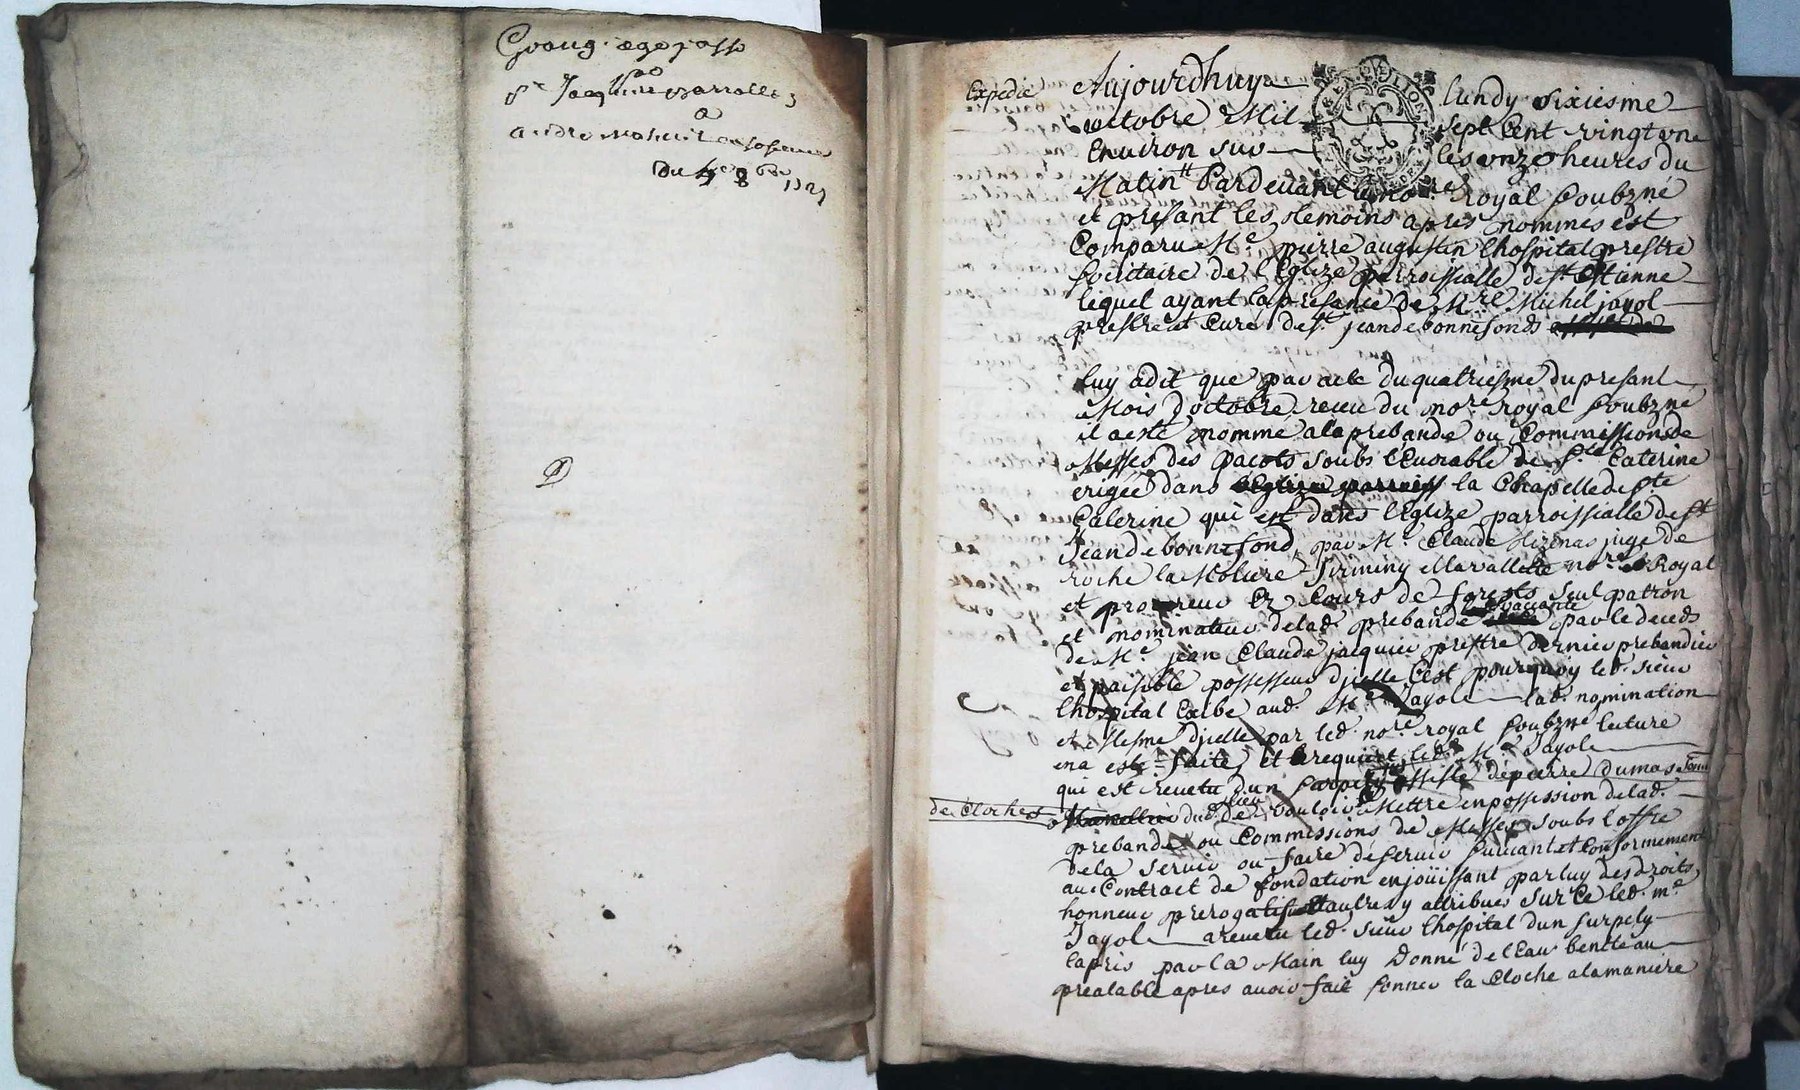 St Jacques
a
Du 4e 8bre 1721
Expedié
Aujourdhuy lundy sixiesme
octobre Mil sept Cent vingt vne
Enuiron sur les onze heures du
Matin Pardeuant le nore Royal soubzné
et presant les temoins apres nommes est
Comparu Me pierre augustin lhospital prestre
socitaire de lEglize parroissialle de st Estienne
lequel ayant la presance de Mre Michel jayol
prestre et Curé de st jean de bonnefonds
luy a dit que par acte du quatriesme du presant
Mois doctobre receu du nore royal soubzné
il a esté nommé a la prebande ou Commissions de
Messes des pacots soubs le vocable de ste Caterine
erigée dans la Chapelle de ste
Caterine qui est dans lEglize parroissialle de st
Jean de bonnefond, par Me Claude Mizenas juge de
roche la Moliere firminy nore Royal
et procureur Ez Cours de forests seul patron
et nominateur de lad. prebande vacante par le deceds
de Me jean Claude jacquier prestre dernier prebandier
et paisible possesseur djcelle Cest pourquoy led. sieur
lhospital Exibe aud. Me Jayol lad. nomination
et Mesme djcelle par led. nore royal soubzné lecture
en a esté faite, et a requis led. Me Jayol
qui est reuetu dun surpely assisté de pierre dumas sonneur
de Cloches
dud. lieu de vouloir Mettre en possession de lad.
prebande ou Commissions de Messes soubs loffre
de la seruir ou faire deseruir suiuant et Conformement
au Contract de fondation en joüissant par luy des droits
honneur prerogatifs et autres y attribues sur Ce led. me
Jayol a reuetu led. sieur lhospital dun surpely
la pris par la Main luy Donné de lEau benite au
prealable apres auoir fait sonner la Cloche a la maniere